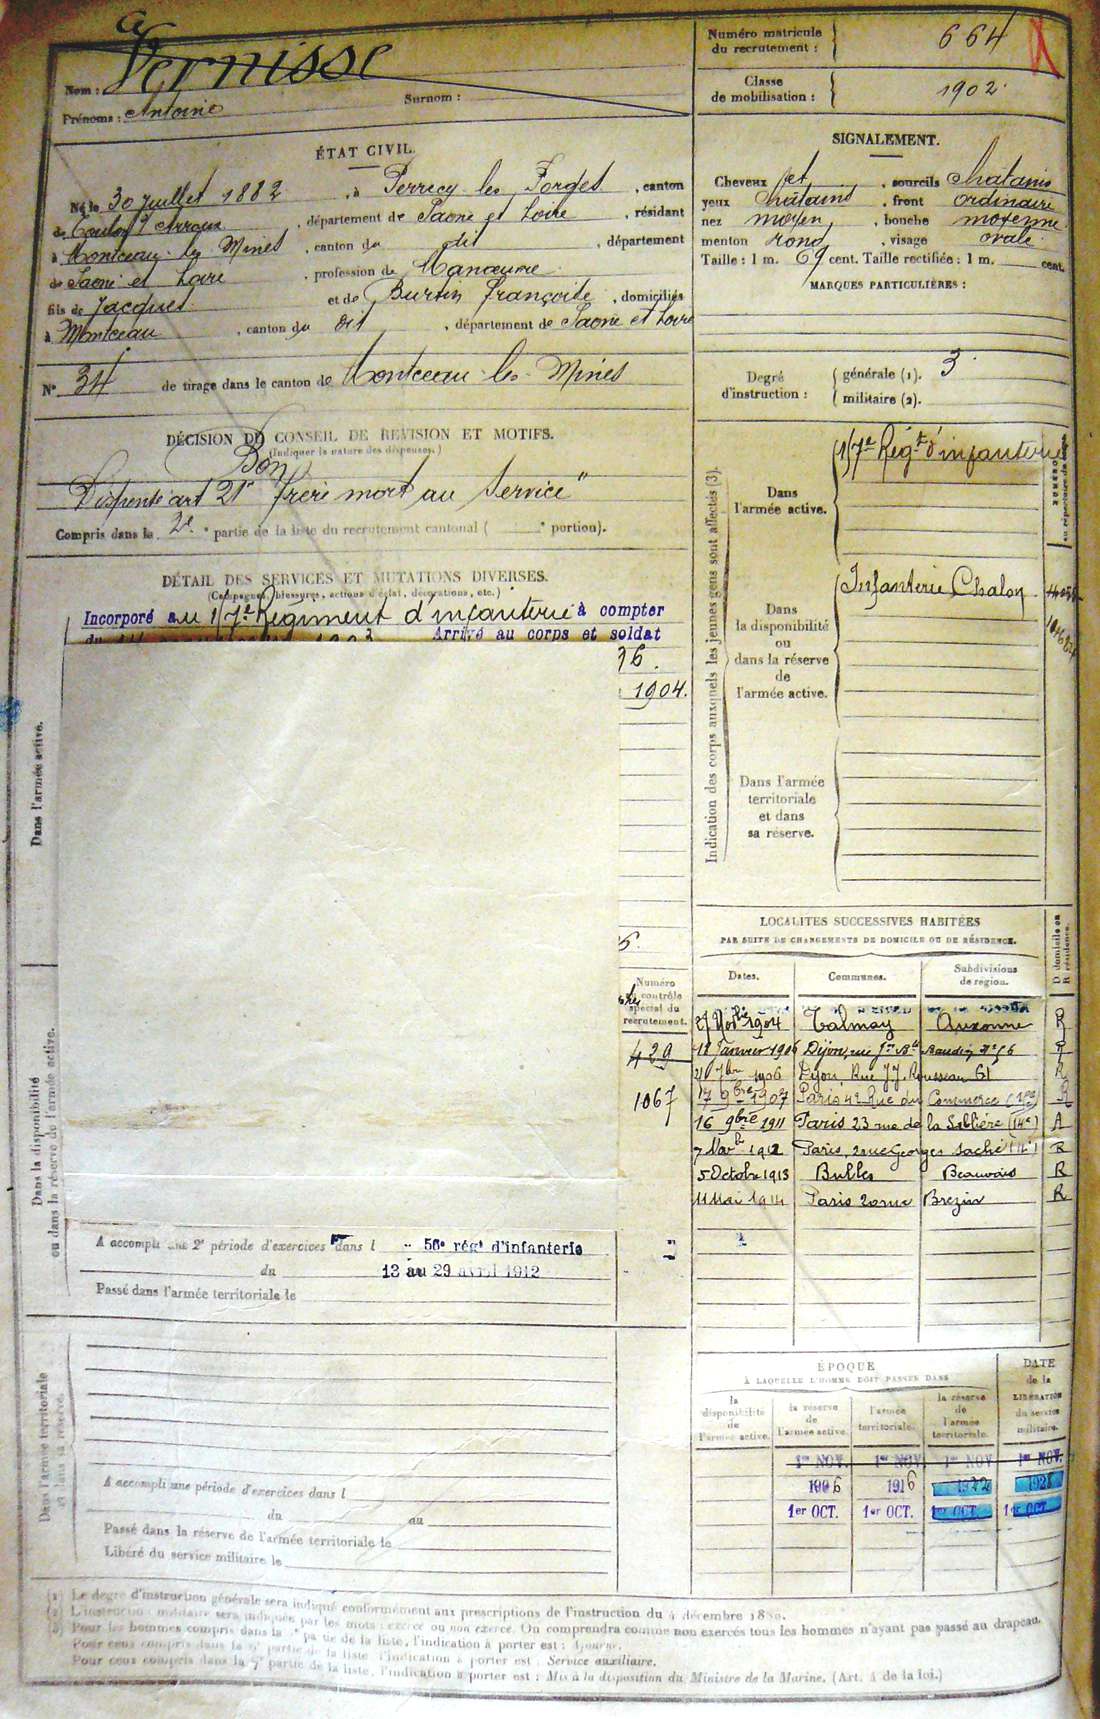 Nom : Vernisse
Prénoms : Antoine Surnom :
Numéro matricule du recrutement : 664
Classe de mobilisation : 1902
ÉTAT CIVIL.
Né le 30 Juillet 1882, à Perrecy les Forges, canton
de Toulon s/ Arroux, département de Saone et Loire, résidant
à Montceau les Mines, canton du dit, département
de Saone et Loire, profession de Manœuvre
fils de Jacques et de Burtin Françoise, domiciliés
à Montceau, canton du dit, département de Saone et Loire
N° 34 de tirage dans le canton de Montceau les Mines
SIGNALEMENT.
Cheveux et, sourcils chatains
yeux chatains, front ordinaire
nez moyen, bouche moyenne
menton rond, visage ovale
Taille : 1 m. 69 cent. Taille rectifiée : 1 m. cent.
MARQUES PARTICULIÈRES :
Degré d'instruction : générale (1). 3
militaire (2).
DÉCISION DU CONSEIL DE REVISION ET MOTIFS.
(Indiquer la nature des dispenses.)
Bon
Dispensé art 21 "frère mort au service"
Compris dans la 2e partie de la liste du recrutement cantonal ( portion).
DÉTAIL DES SERVICES ET MUTATIONS DIVERSES.
(Campagnes, blessures, actions d'éclat, décorations, etc.)
Incorporé au 17e Régiment d'infanterie à compter
du Arrivé au corps et soldat
1904.
Dans l'armée active.
Dans la disponibilité
ou dans la réserve de l'armée active.
Numéro
contrôle
spécial du
recrutement.
429
1067
A accompli une 2e période d'exercices dans l 56e régt d'infanterie
du 13 au 29 avril 1912
Passé dans l'armée territoriale le
Dans l'armée territoriale
et dans sa réserve.
A accompli une période d'exercices dans l
du au
Passé dans la réserve de l'armée territoriale le
Libéré du service militaire le
Indication des corps auxquels les jeunes gens sont affectés (3).
Dans l'armée active.
17e Régt d'infanterie
Dans
la disponibilité
ou
dans la réserve
de
l'armée active.
Infanterie Chalon
Dans l'armée
territoriale
et dans
sa réserve.
LOCALITÉS SUCCESSIVES HABITÉES
PAR SUITE DE CHANGEMENTS DE DOMICILE OU DE RÉSIDENCE.
Dates. Communes. Subdivisions de région. D domicile ou R résidence.
1904 Talmay Auxonne R
18 Janvier 1906 Dijon, rue Jn Bte Baudin N° 56 R
1906 Dijon, Rue JJ. Rousseau 61 R
17 9bre 1907 Paris 4 Rue du Commerce R
16 9bre 1911 Paris 23 rue de la Sablière (14e) A
7 1912 Paris, 2 rue Georges Saché (14e) R
5 Octobre 1913 Bulles Beauvais R
11 Mai 1914 Paris 20 rue Brezin R
ÉPOQUE
À LAQUELLE L'HOMME DOIT PASSER DANS
DATE
de la
LIBÉRATION
du service
militaire.
la disponibilité de l'armée active.
la réserve de l'armée active.
l'armée territoriale.
la réserve de l'armée territoriale.
1er NOV. 1er NOV. 1er NOV. 1er NOV.
1906 1916 1922
1er OCT. 1er OCT. 1er OCT. 1er OCT.
(1) Le degré d'instruction générale sera indiqué conformément aux prescriptions de l'instruction du 4 décembre 1889.
(2) L'instruction militaire sera indiquée par les mots : exercé ou non exercé. On comprendra comme non exercés tous les hommes n'ayant pas passé au drapeau.
(3) Pour les hommes compris dans la partie de la liste, l'indication à porter est : Ajourné.
Pour ceux compris dans la partie de la liste l'indication à porter est : Service auxiliaire.
Pour ceux compris dans la 7e partie de la liste, l'indication à porter est : Mis à la disposition du Ministre de la Marine. (Art. 4 de la loi.)